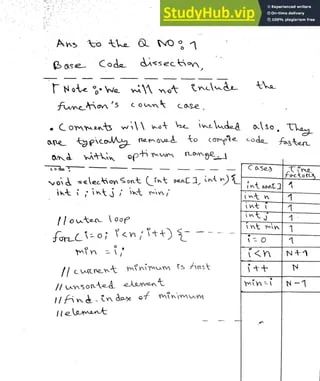 StudyHub.vip
Experienced writers
On-time delivery
100% plagiarism free
Ans to the Q NO: 1
Base Code dissection,
[Note: • We will not include the
function's count case.
• Comments will not be included also. They
are typically removed to compile code faster
and within optimum range]
code:
void selectionSort (int arr[], int n){
int i; int j; int min;
//outer loop
for(i=0; i<n; i++) {
min = i;
// current minimum is first
//unsorted element
//find index of minimum
//element
Cases | Time Factors
int arr[] | 1
int n | 1
int i | 1
int j | 1
int min | 1
i=0 | 1
i<n | N+1
i++ | N
min=i | N-1